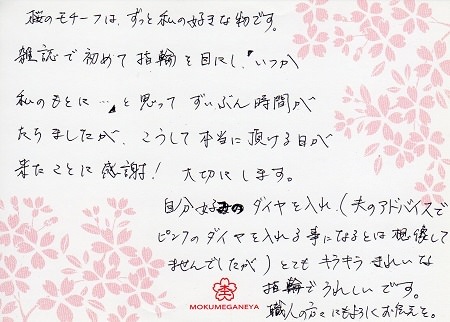 桜のモチーフは、ずっと私の好きな物です。
雑誌で初めて指輪を目にし、『いつか
私のもとに…』と思って ずいぶん時間が
たちましたが、こうして本当に頂ける日が
来たことに感謝！ 大切にします。
自分好みの ダイヤを入れ、(夫のアドバイスで
ピンクのダイヤを入れる事になるとは想像して
ませんでしたが) とても キラキラ きれいな
指輪で うれしいです。
職人の方々にもよろしくお伝えを。
MOKUMEGANEYA